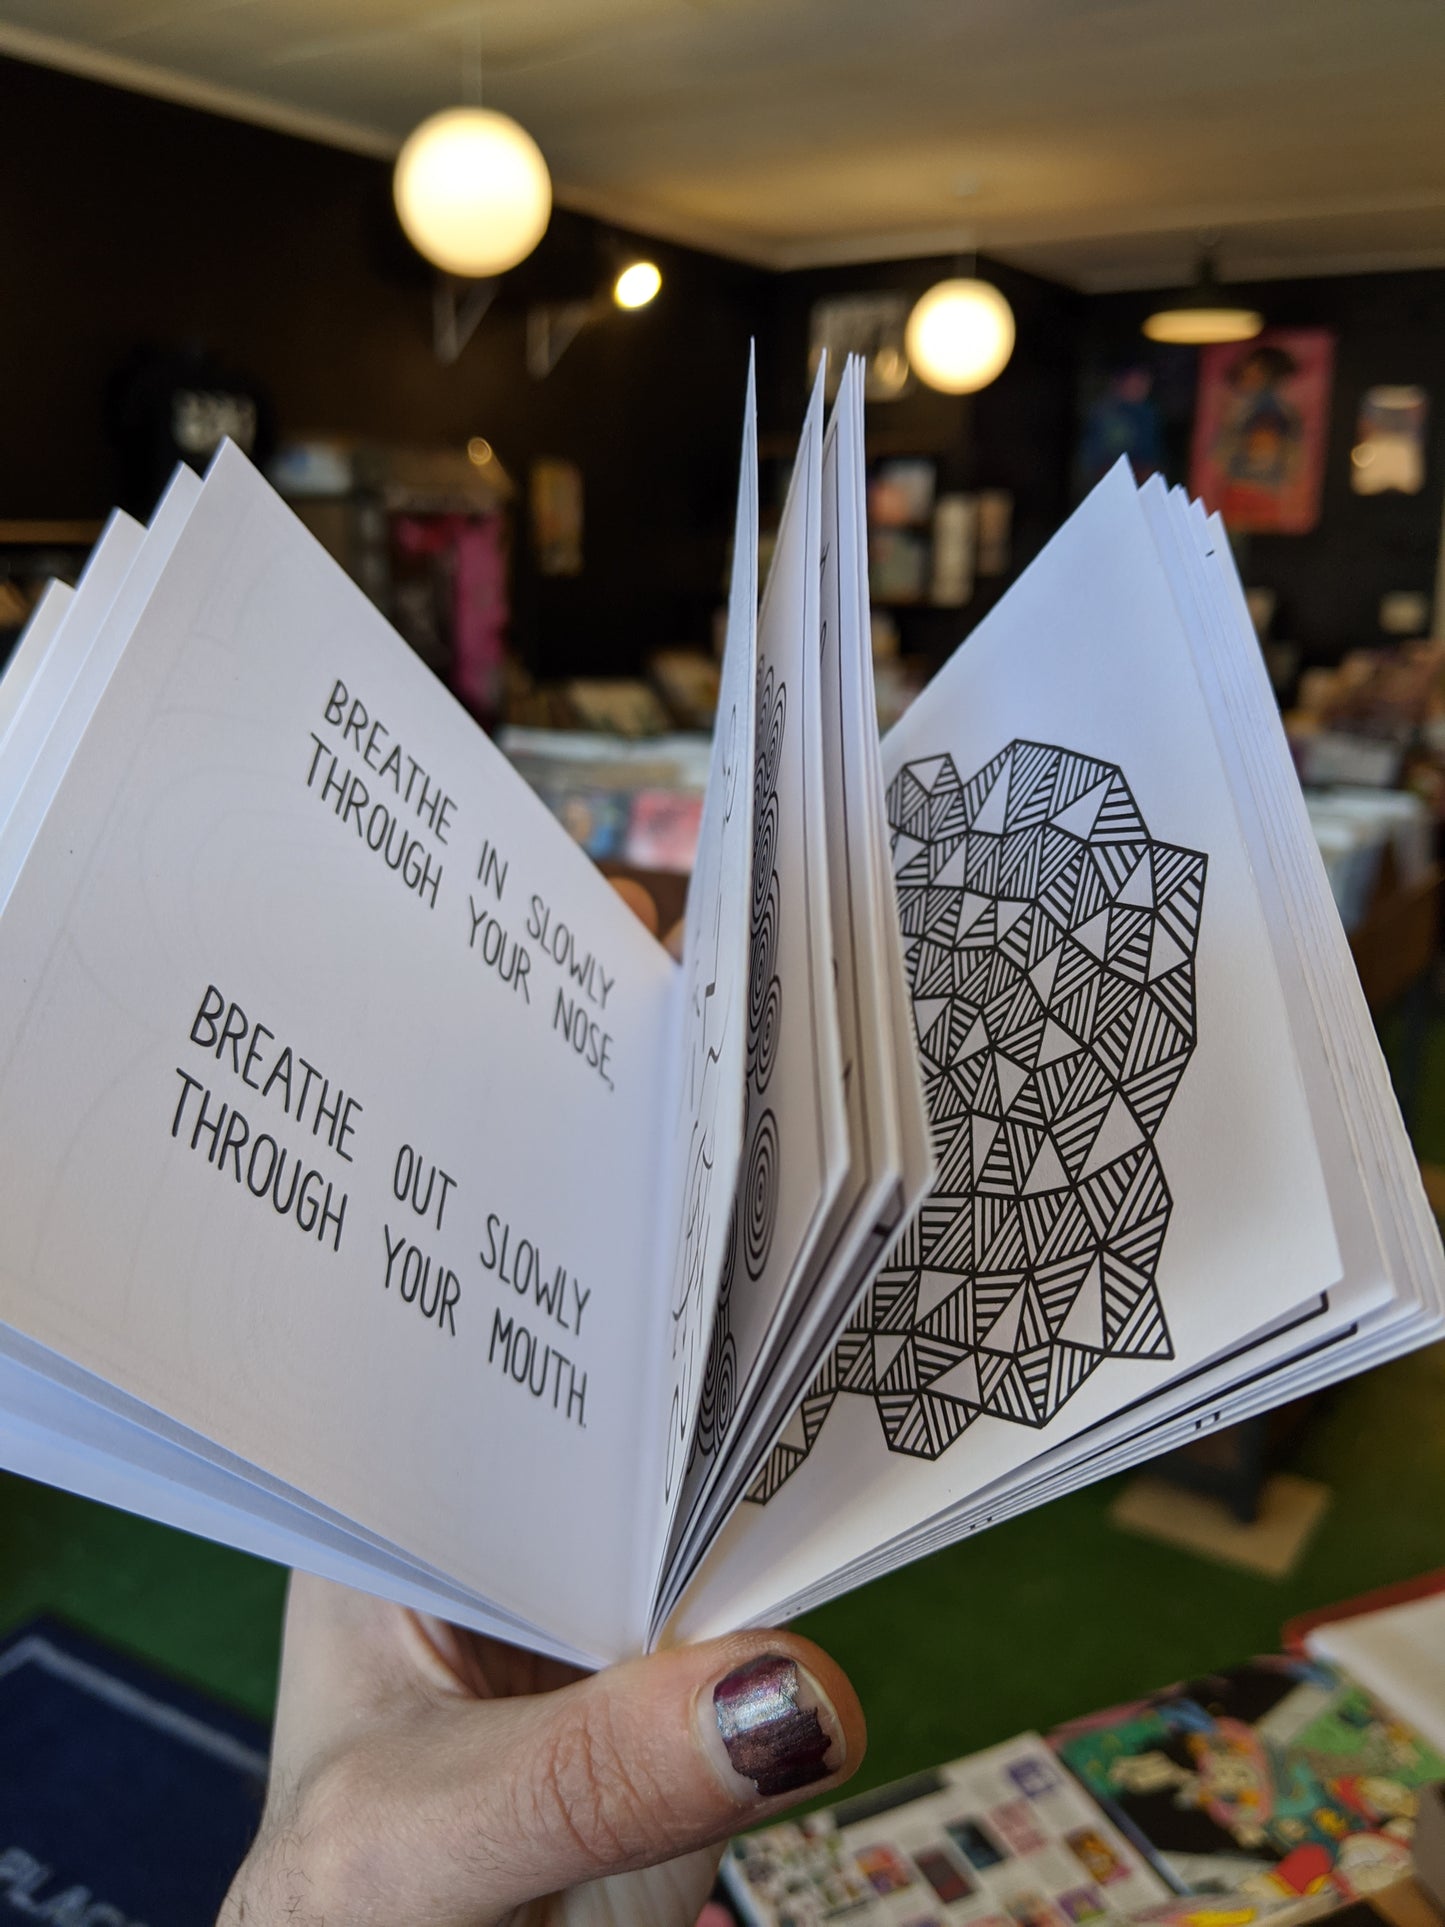 BREATHE IN SLOWLY
THROUGH YOUR NOSE,
BREATHE OUT SLOWLY
THROUGH YOUR MOUTH.